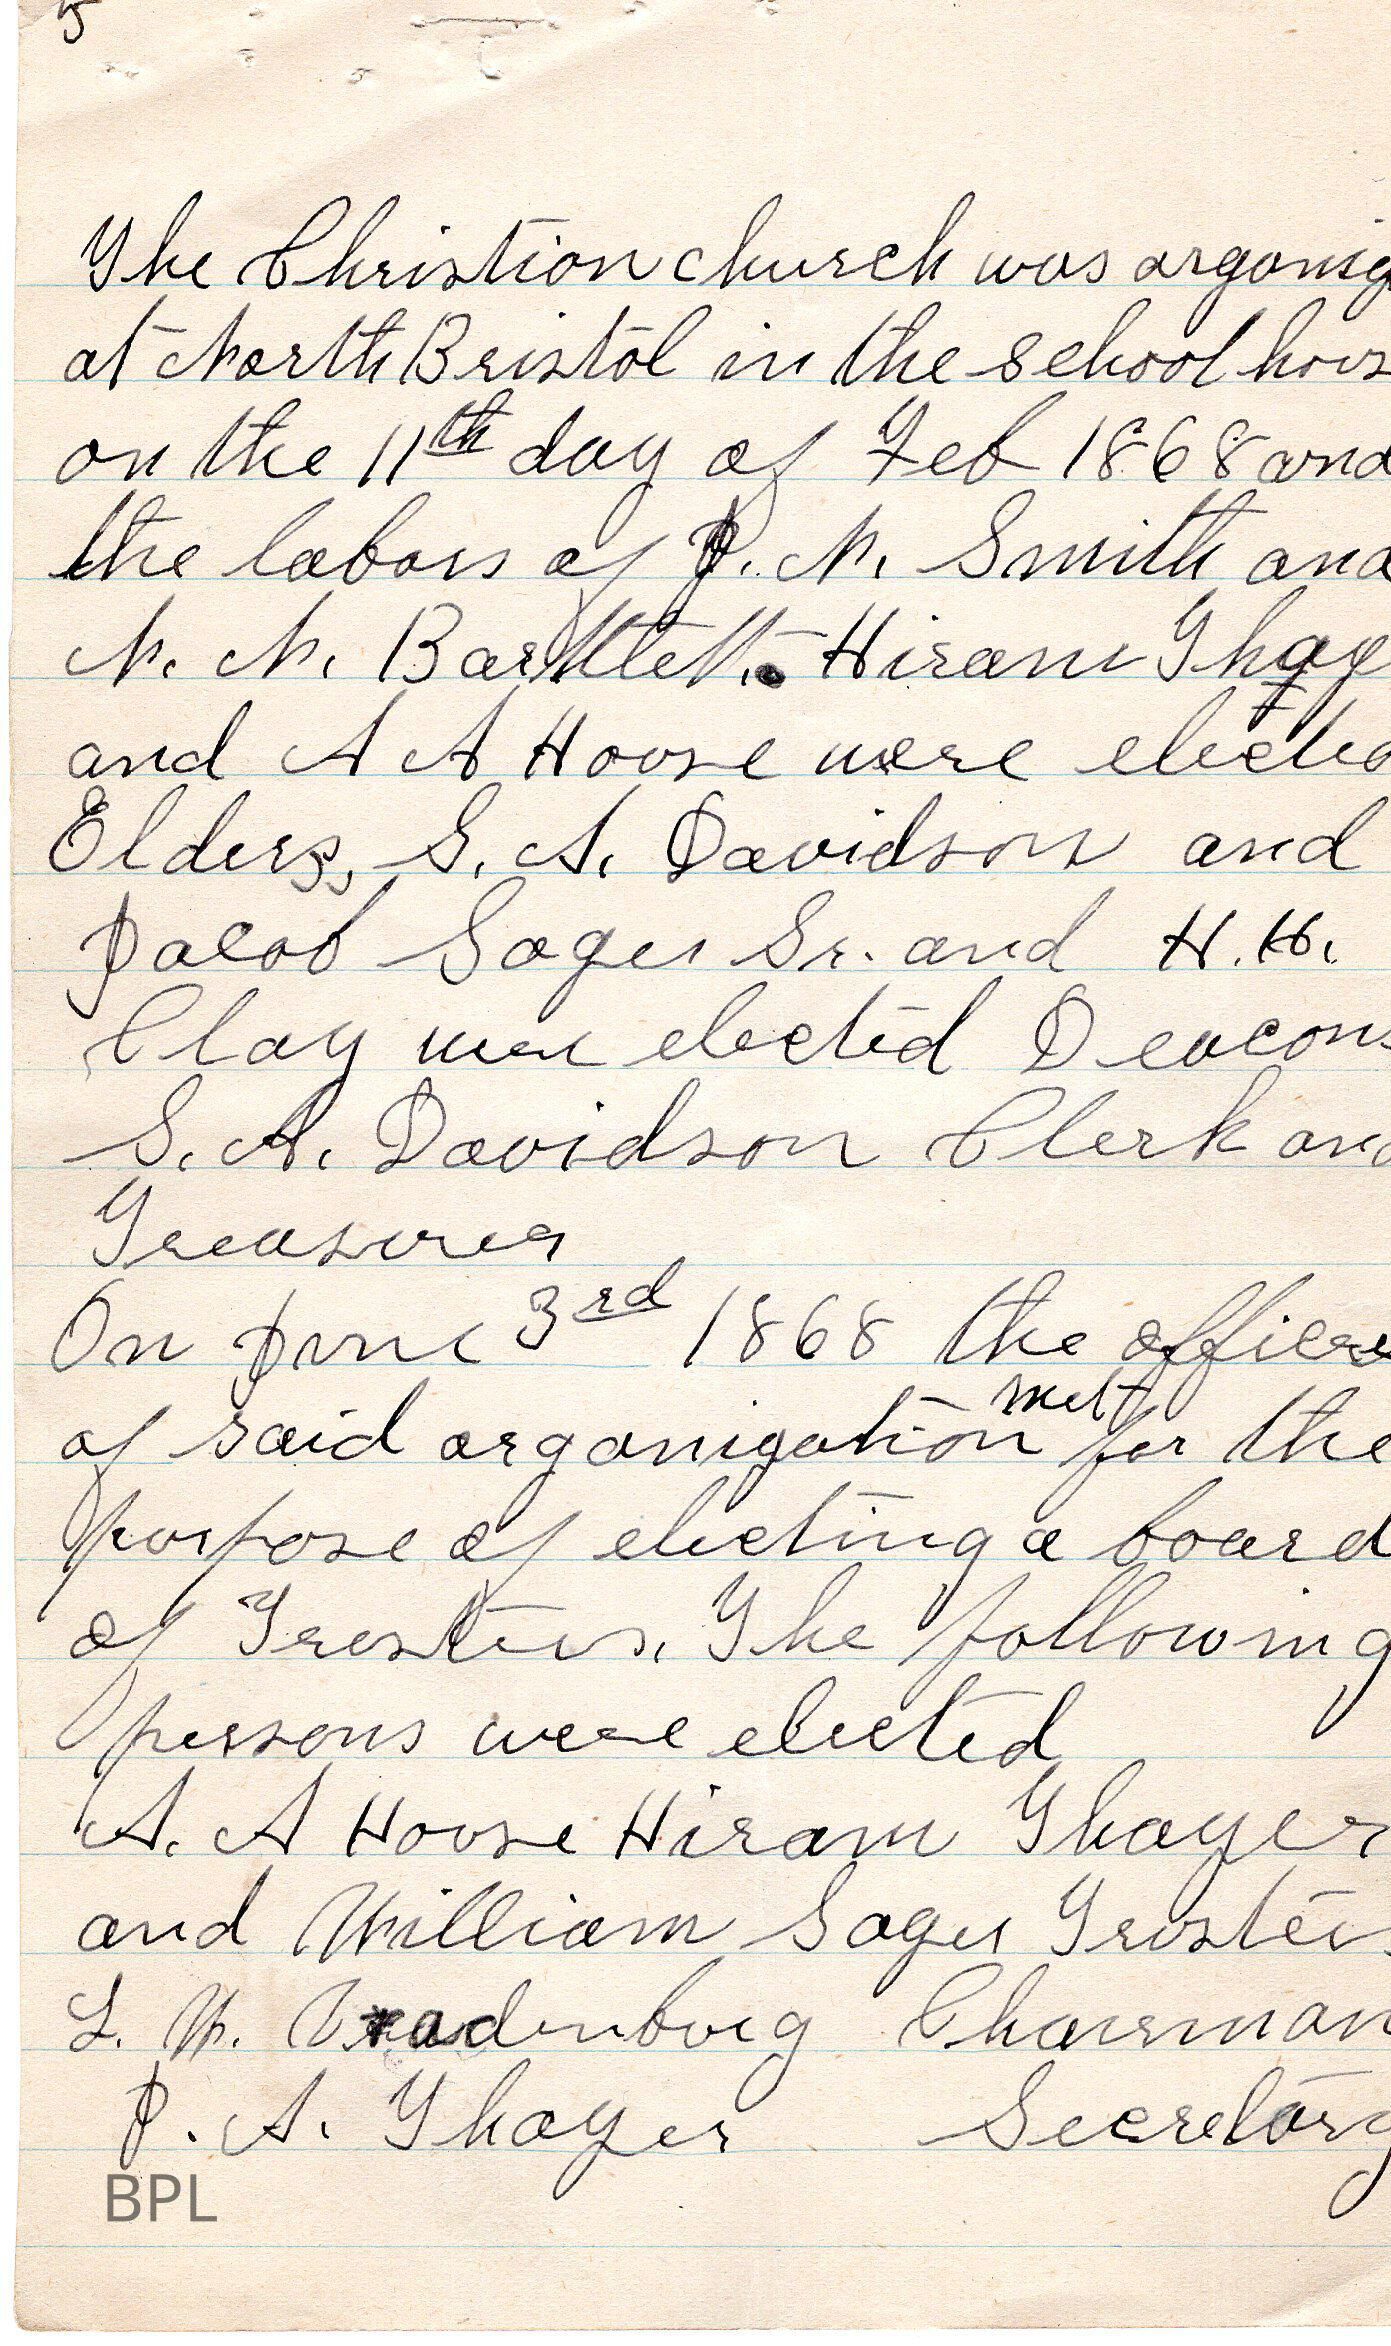 5
The Christion church was organiz
at North Bristol in the school hous
on the 11th day of Feb 1868 and
the labors of J. N. Smith and
N. N. Bartlett. Hiram Thaye
and A A House were electe
Elders, S. A. Davidson and
Jacob Sager Sr. and H. H.
Clay were elected Deacons
S. A. Davidson Clerk and
Treasurer
On June 3rd 1868 the officers
met
of said organization for the
purpose of electing a board
of Trustees. The following
persons were elected
A. A House Hiram Thayer
and William Sager Trustees
L. W. Vradenburg Chairman
J. A. Thayer Secretary
BPL